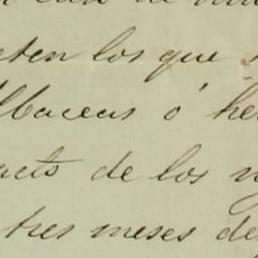 cten los que
lbaceas ó he
acto de los
tres meses de